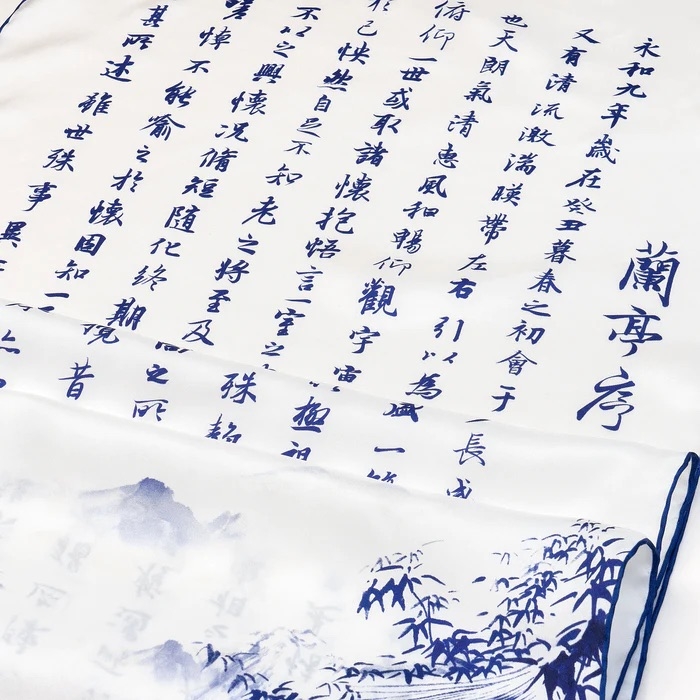 蘭亭序
永和九年歲在癸丑暮春之初會于
又有清流激湍暎帶左右引以為
也天朗氣清惠風和暢仰觀宇宙
俯仰一世或取諸懷抱悟言一室之
於己怏然自足不知老之將至及
不以之興懷況脩短隨化終期
嗟悼不能喻之於懷固知一
其所述雖世殊事異
長咸
盛一
極
殊
之所
昔